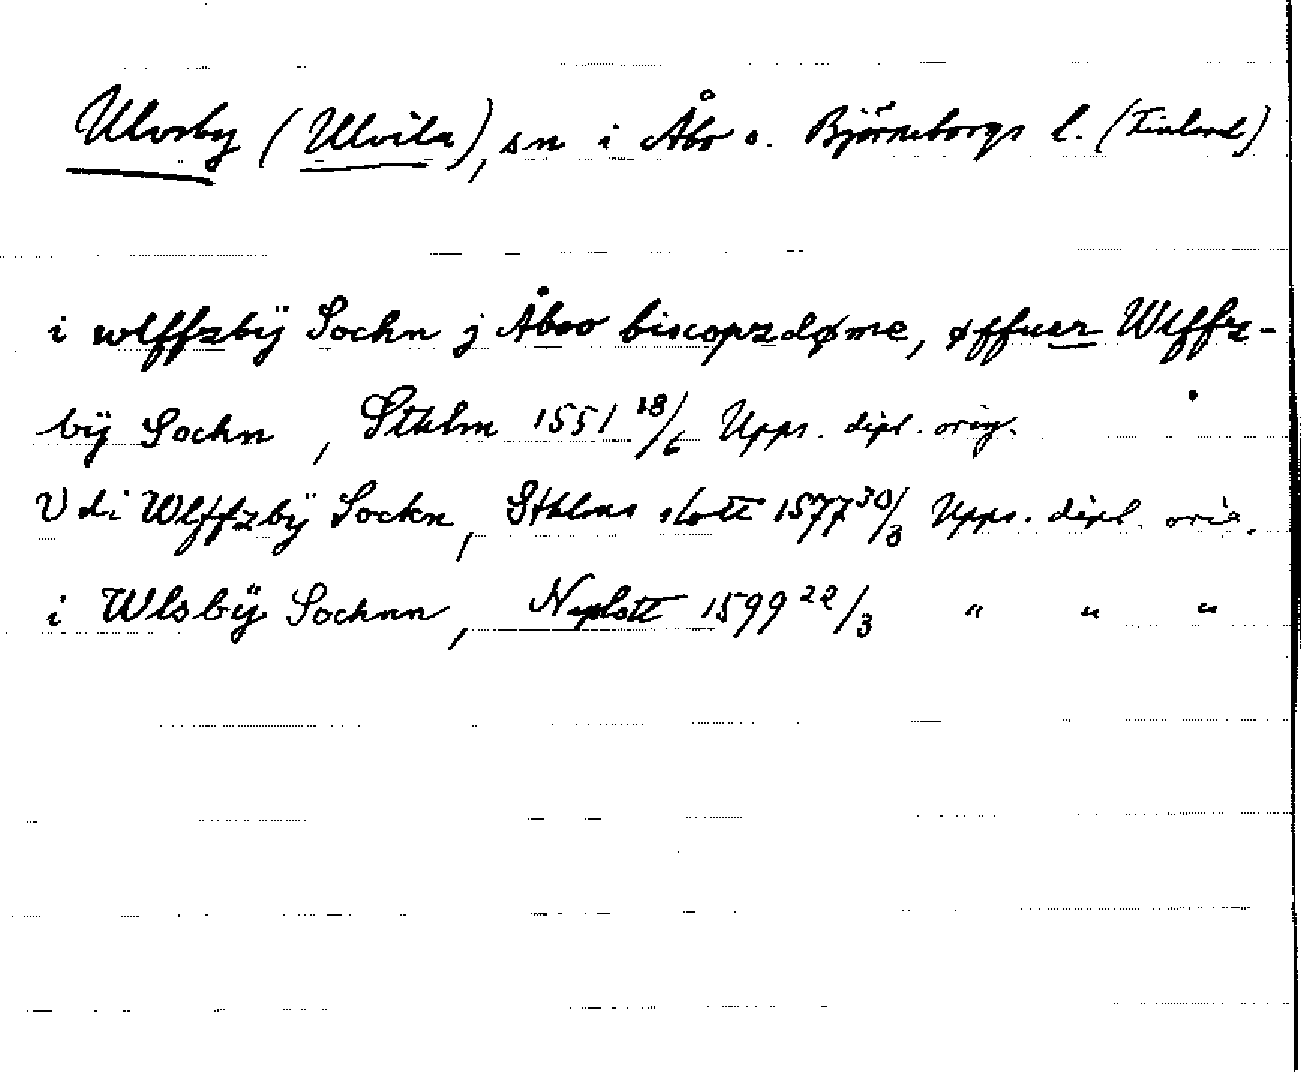 Ulvsby (Ulvila), sn i Åbo o. Björneborgs l. (Finland)
i wlffzbÿ Sochn j Åboo biscopzdøme, øffuer Wlffz-
bÿ Sochn, Sthlm 1551 18/6 Upps. dipl. orig.
V di Wlffzbÿ Sockn, Sthlms slott 1577 30/3 Upps. dipl. orig.
i Wlsbÿ Sochnn, Nyslott 1599 22/3 " " "